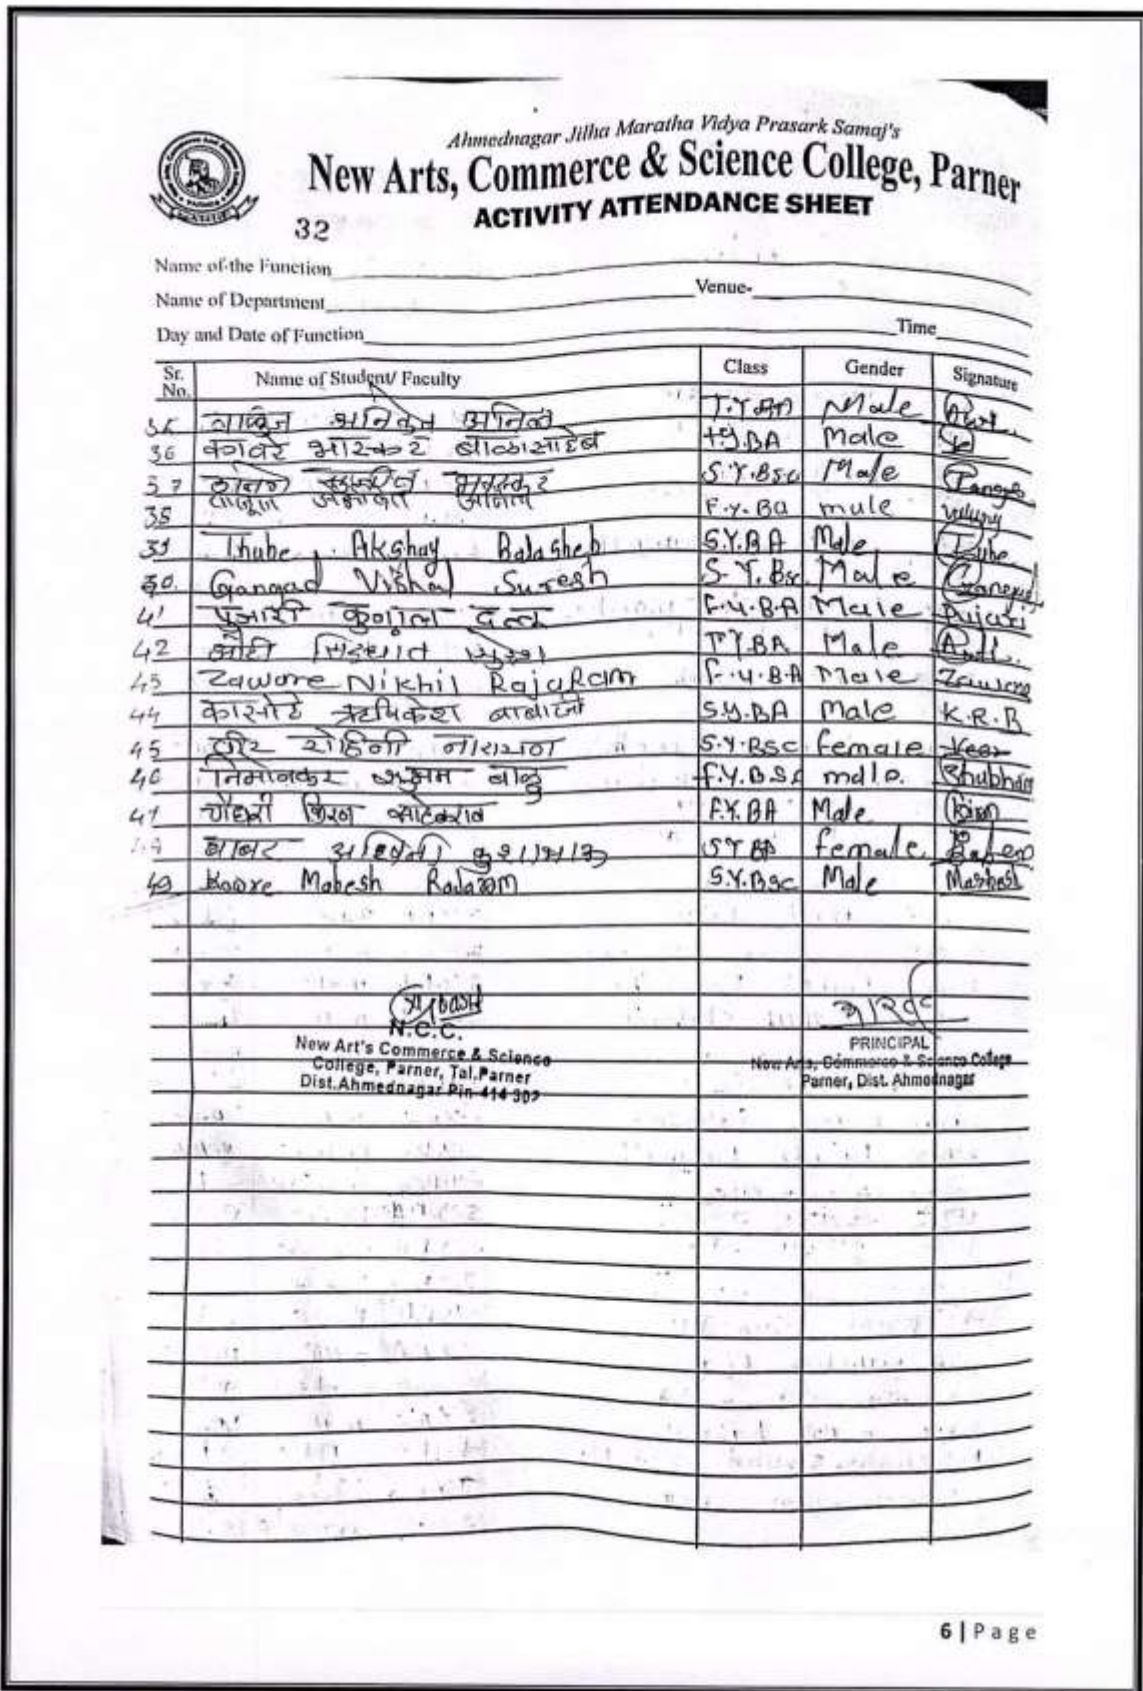 Ahmednagar Jilha Maratha Vidya Prasark Samaj's
New Arts, Commerce & Science College, Parner
ACTIVITY ATTENDANCE SHEET
32
Name of the Function
Name of Department Venue-
Day and Date of Function Time
Sr. No. Name of Student/ Faculty Class Gender Signature
अनिकेत अनिल Male
36 कावरे भास्कर बाळासाहेब T.Y.BA Male
37 S.Y.BSc Male
38 F.Y.BA male
39 Thube Akshay Balasheb S.Y.BA Male Tube
Gangad Vishal Suresh S.Y.BSc Male Gangad
41 पुजारी कुणाल दत्ता F.Y.BA Male Pujari
42 औटी सिद्धांत सुरेश BA Male
43 Zaware Nikhil RajaRam F.Y.BA Male Zaware
44 कासोटे ऋषिकेश बाबाजी S.Y.BA Male K.R.B
45 वीर रोहिणी नारायण S.Y.BSC female Veer
46 निमोनकर शुभम बाळु F.Y.BSc male. Shubham
47 चौधरी किरण F.Y.BA Male Kiran
बाबर अश्विनी SYBA female
49 Kavre Mahesh Rajaram S.Y.BSc Male Mashesh
N.C.C.
New Art's Commerce & Science
College, Parner, Tal.Parner
Dist.Ahmednagar Pin 414 302
PRINCIPAL
New Arts, Commerce & Science College
Parner, Dist. Ahmednagar
6 | Page